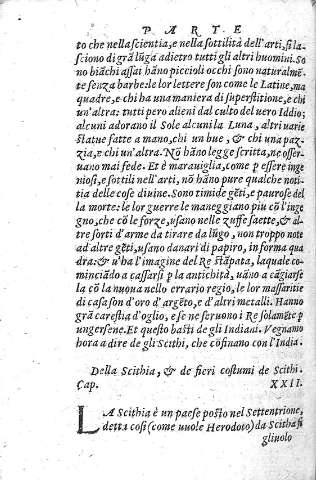 PARTE
to che nella scientia, e nella sottilità dell'arti, si la-
sciono di grã lũga adietro tutti gli altri huomini. So
no biãchi assai hãno piccioli occhi sono naturalmẽ-
te senza barbe: le lor lettere son come le Latine, ma
quadre, e chi ha una maniera di superstitione, e chi
un'altra: tutti pero alieni dal culto del uero Iddio;
alcuni adorano il Sole alcuni la Luna, altri uarie
statue fatte a mano, chi un bue, & chi una paz-
zia, e chi un'altra. Nõ hãno legge scritta, ne osser-
uano mai fede. Et è marauiglia, come p essere inge
niosi, e sottili nell'arti, nõ hãno pure qualche noti-
tia delle cose diuine. Sono timide gẽti, e paurose del
la morte: le lor guerre le maneggiano piu cõ l'inge
gno, che cõ le forze, usano nelle zuffe saette, & al-
tre sorti d'arme da tirare da lũgo, non troppo note
ad altre gẽti, usano danari di papiro, in forma qua
dra: & u'ha l'imagine del Re stãpata, la quale co-
minciãdo a cassarsi p la antichità, uãno a cãgiarse
la cõ la nuoua nello errario regio, le lor massaritie
di casa son d'oro d'argẽto, e d'altri metalli. Hanno
grã carestia d'oglio, e se ne seruono i Re solamẽte p
ungersene. Et questo basti de gli Indiani. Vegnamo
hora a dire de gli Scithi, che cõfinano con l'India.
Della Scithia, & de fieri costumi de Scithi.
Cap. XXII.
LA Scithia è un paese posto nel Settentrione,
detta cosi (come uuole Herodoto) da Scitha fi
gliuolo